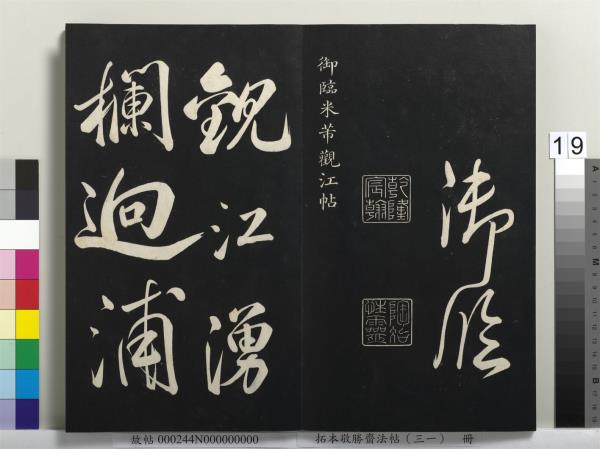 御臨
乾隆宸翰
陶冶性靈
御臨米芾觀江帖
觀江湧
欄逈浦
19
故帖 000244N000000000
拓本敬勝齋法帖(三一) 冊